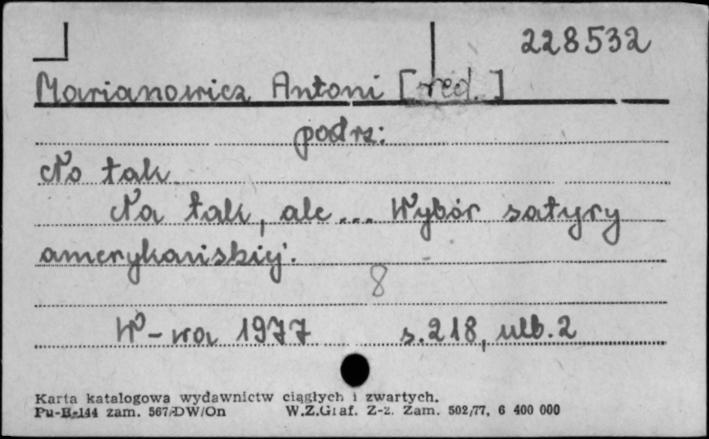 228532
Marianowicz Antoni [red.]
podrz:
No tak
Na tak, ale... Wybór satyry
amerykańskiej.
8
W-wa 1977 s. 218, nlb. 2
Karta katalogowa wydawnictw ciągłych i zwartych.
Pu-B-144 zam. 567/DW/On W.Z.Graf. Z-z. Zam. 502/77, 6 400 000